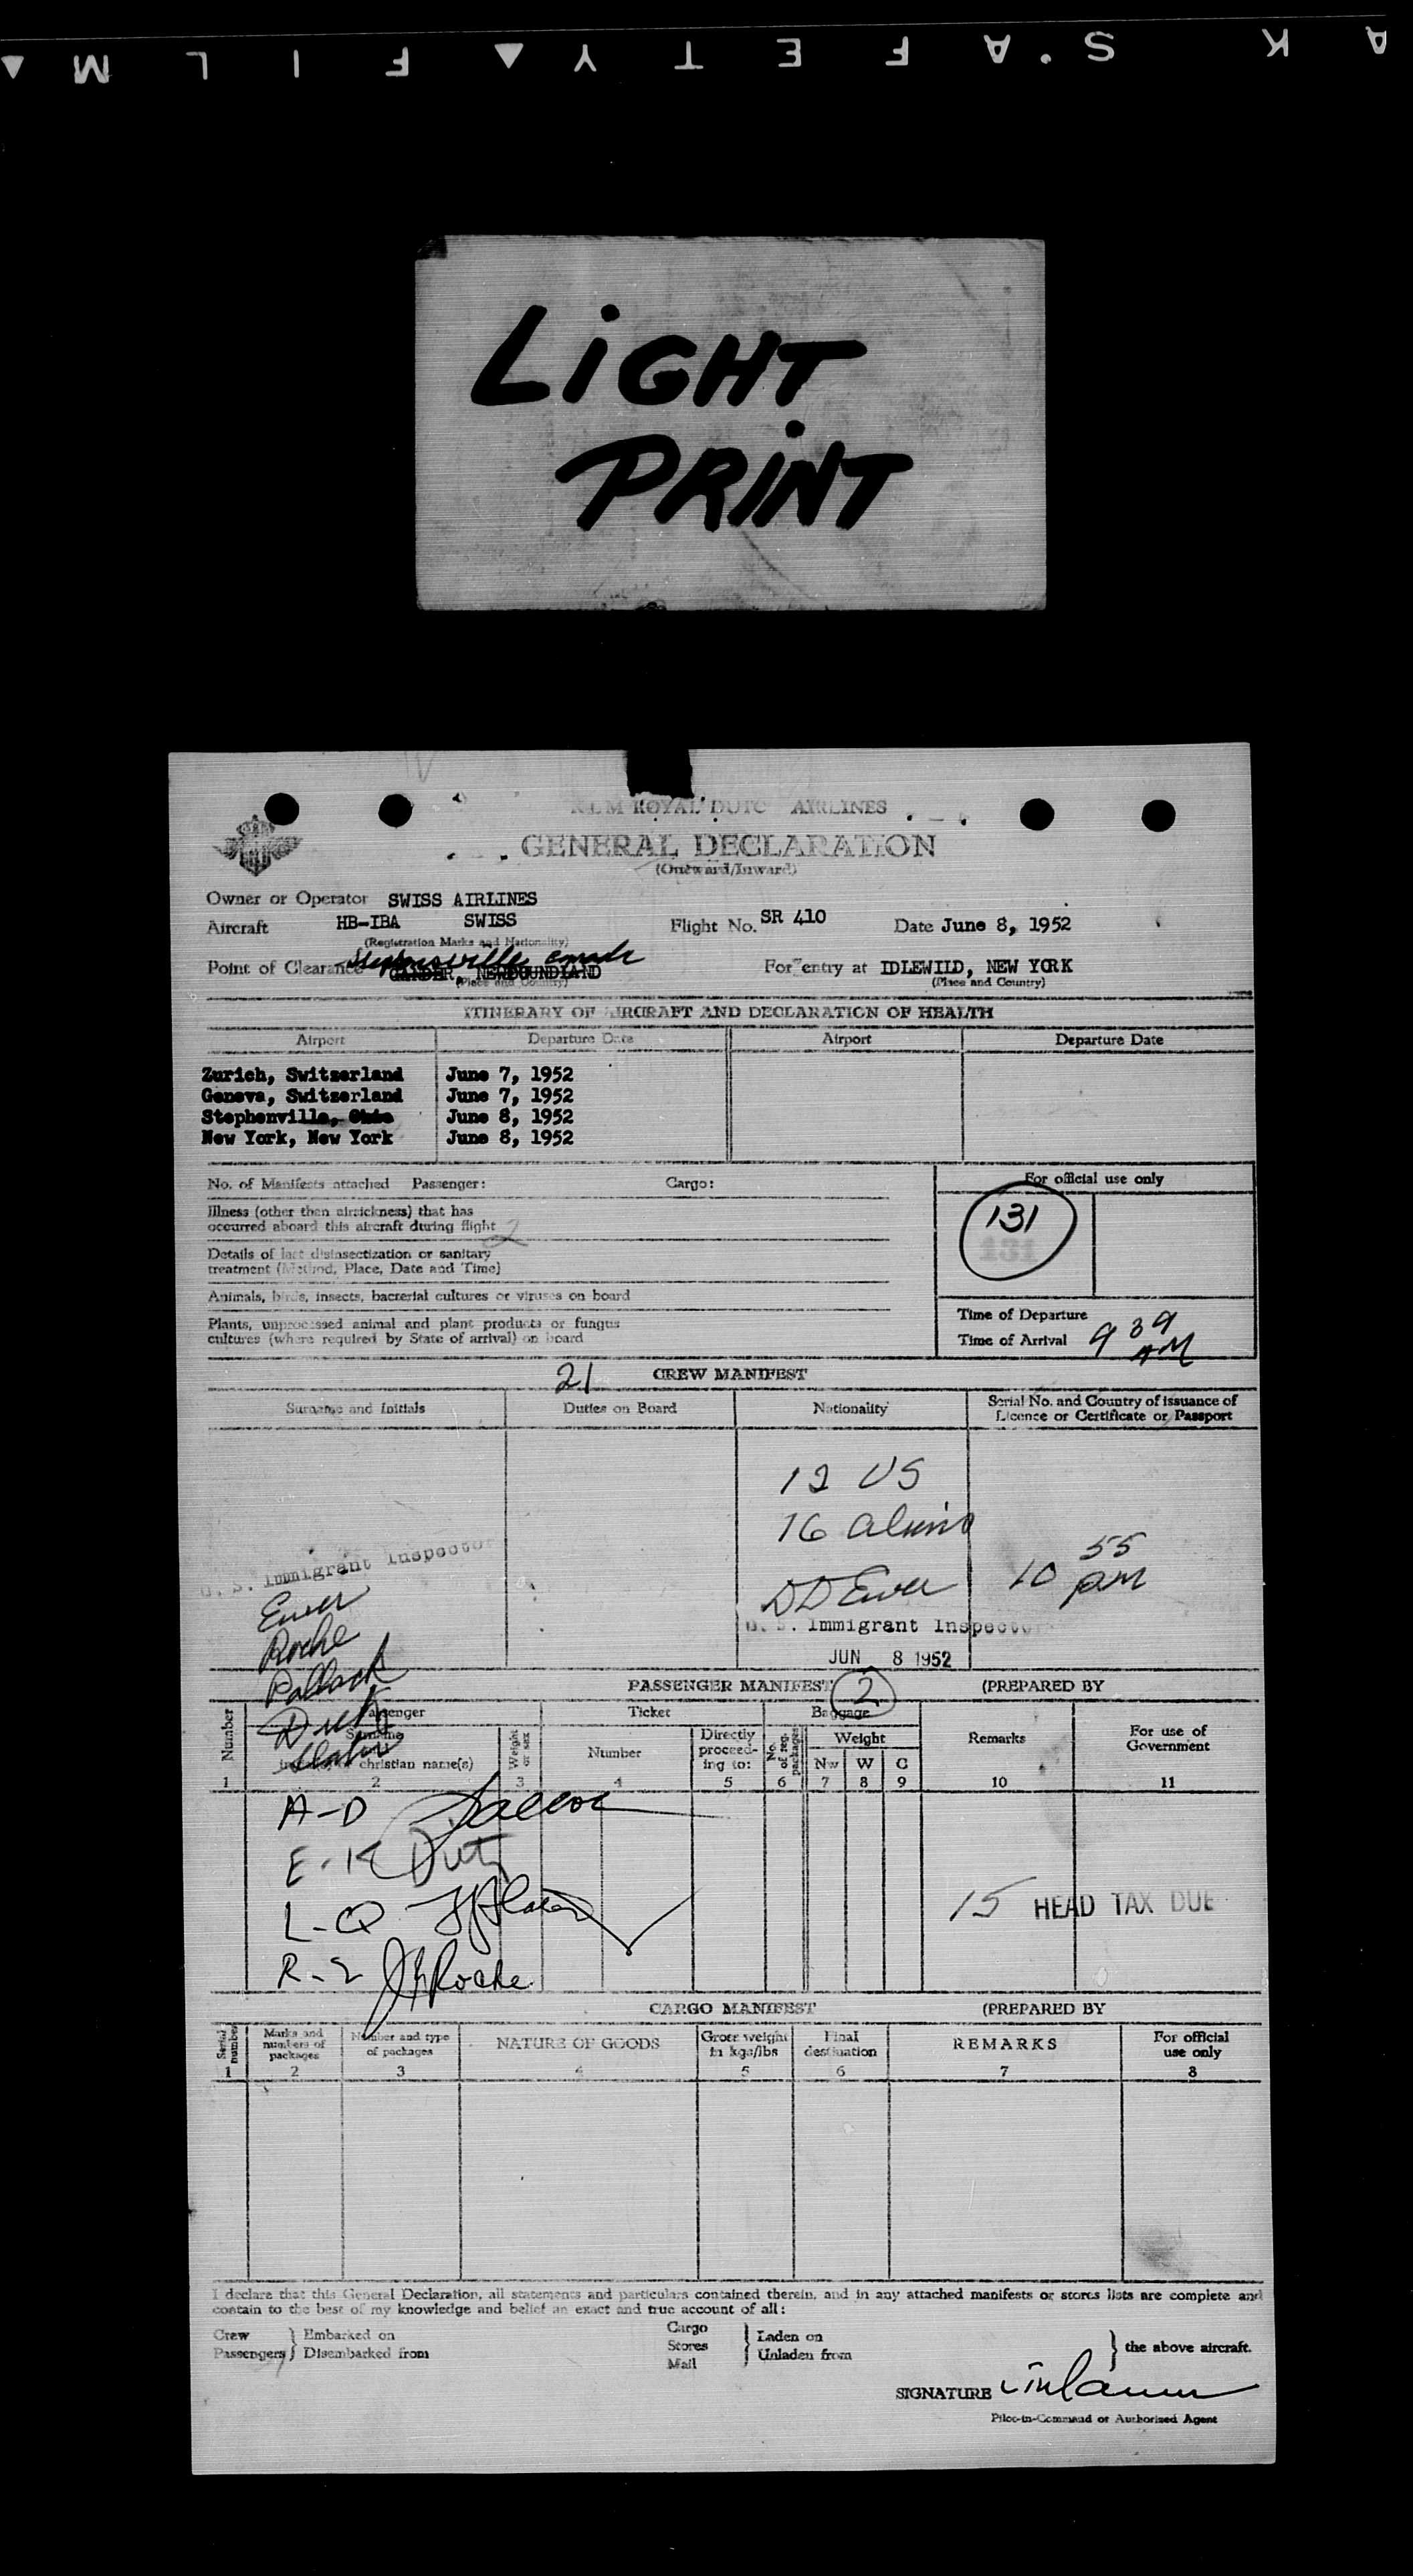 K S.A F E T Y ▲ F I L M ▲
LiGHT
PRiNT
KLM ROYAL DUTC AIRLINES
GENERAL DECLARATION
(Outward/Inward)
Owner or Operator SWISS AIRLINES
Aircraft HB-IBA SWISS Flight No. SR 410 Date June 8, 1952
(Registration Marks and Nationality)
Point of Clearance GANDER, NEWFOUNDLAND For entry at IDLEWILD, NEW YORK
(Place and Country) (Place and Country)
ITINERARY OF AIRCRAFT AND DECLARATION OF HEALTH
Airport Departure Date Airport Departure Date
Zurich, Switzerland June 7, 1952
Geneva, Switzerland June 7, 1952
Stephenville, Ohio June 8, 1952
New York, New York June 8, 1952
No. of Manifests attached Passenger: Cargo: For official use only
Illness (other than airsickness) that has
occurred aboard this aircraft during flight 2
131
131
Details of last disinsectization or sanitary
treatment (Method, Place, Date and Time)
Animals, birds, insects, bacterial cultures or viruses on board
Plants, unprocessed animal and plant products or fungus
cultures (where required by State of arrival) on board
Time of Departure
Time of Arrival 9 39 AM
21 CREW MANIFEST
Surname and initials Duties on Board Nationality Serial No. and Country of issuance of
Licence or Certificate or Passport
12 US
16 aliens
10 55 am
U. S. Immigrant Inspector
Ewer
Roche
Pollack
DD Ewer
U. S. Immigrant Inspector
JUN 8 1952
PASSENGER MANIFEST 2 (PREPARED BY
Number Passenger Ticket Baggage Remarks For use of
Government
Surname
christian name(s) Weight or sex Number Directly
proceed-
ing to: No. of reg. packages Weight
Nw W C
1 2 3 4 5 6 7 8 9 10 11
A-D
E-K
L-Q
R-Z J Roche
15 HEAD TAX DUE
CARGO MANIFEST (PREPARED BY
Serial number Marks and
numbers of
packages Number and type
of packages NATURE OF GOODS Gross weight
in kgs/lbs Final
destination REMARKS For official
use only
1 2 3 4 5 6 7 8
I declare that this General Declaration, all statements and particulars contained therein, and in any attached manifests or stores lists are complete and
contain to the best of my knowledge and belief an exact and true account of all:
Crew
Passengers } Embarked on
Disembarked from
Cargo
Stores
Mail } Laden on
Unladen from } the above aircraft.
SIGNATURE
Pilot-in-Command or Authorized Agent